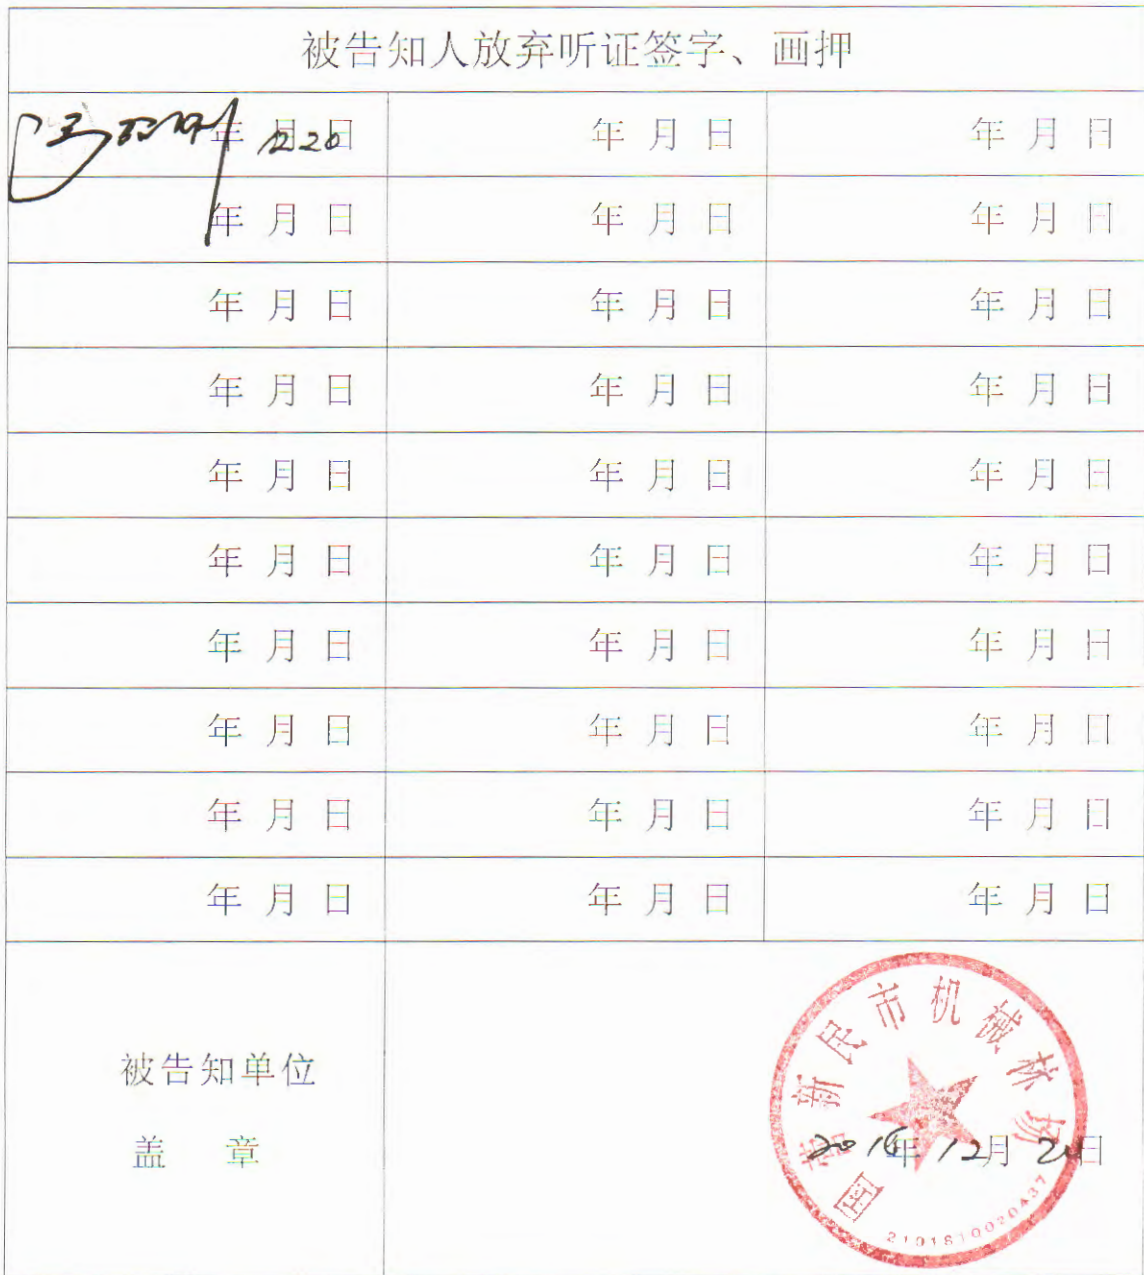 被告知人放弃听证签字、画押
年 月 日 12.20 年 月 日 年 月 日
年 月 日 年 月 日 年 月 日
年 月 日 年 月 日 年 月 日
年 月 日 年 月 日 年 月 日
年 月 日 年 月 日 年 月 日
年 月 日 年 月 日 年 月 日
年 月 日 年 月 日 年 月 日
年 月 日 年 月 日 年 月 日
年 月 日 年 月 日 年 月 日
年 月 日 年 月 日 年 月 日
被告知单位
盖 章
国营新民市机械林场
年 12月 日
2101810020437